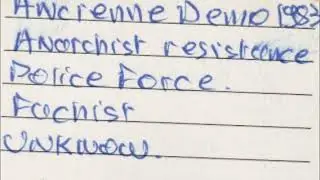 Ancienne Demo 1983
Anorchist resistance
Police Force.
Fachist
UNKNOW.